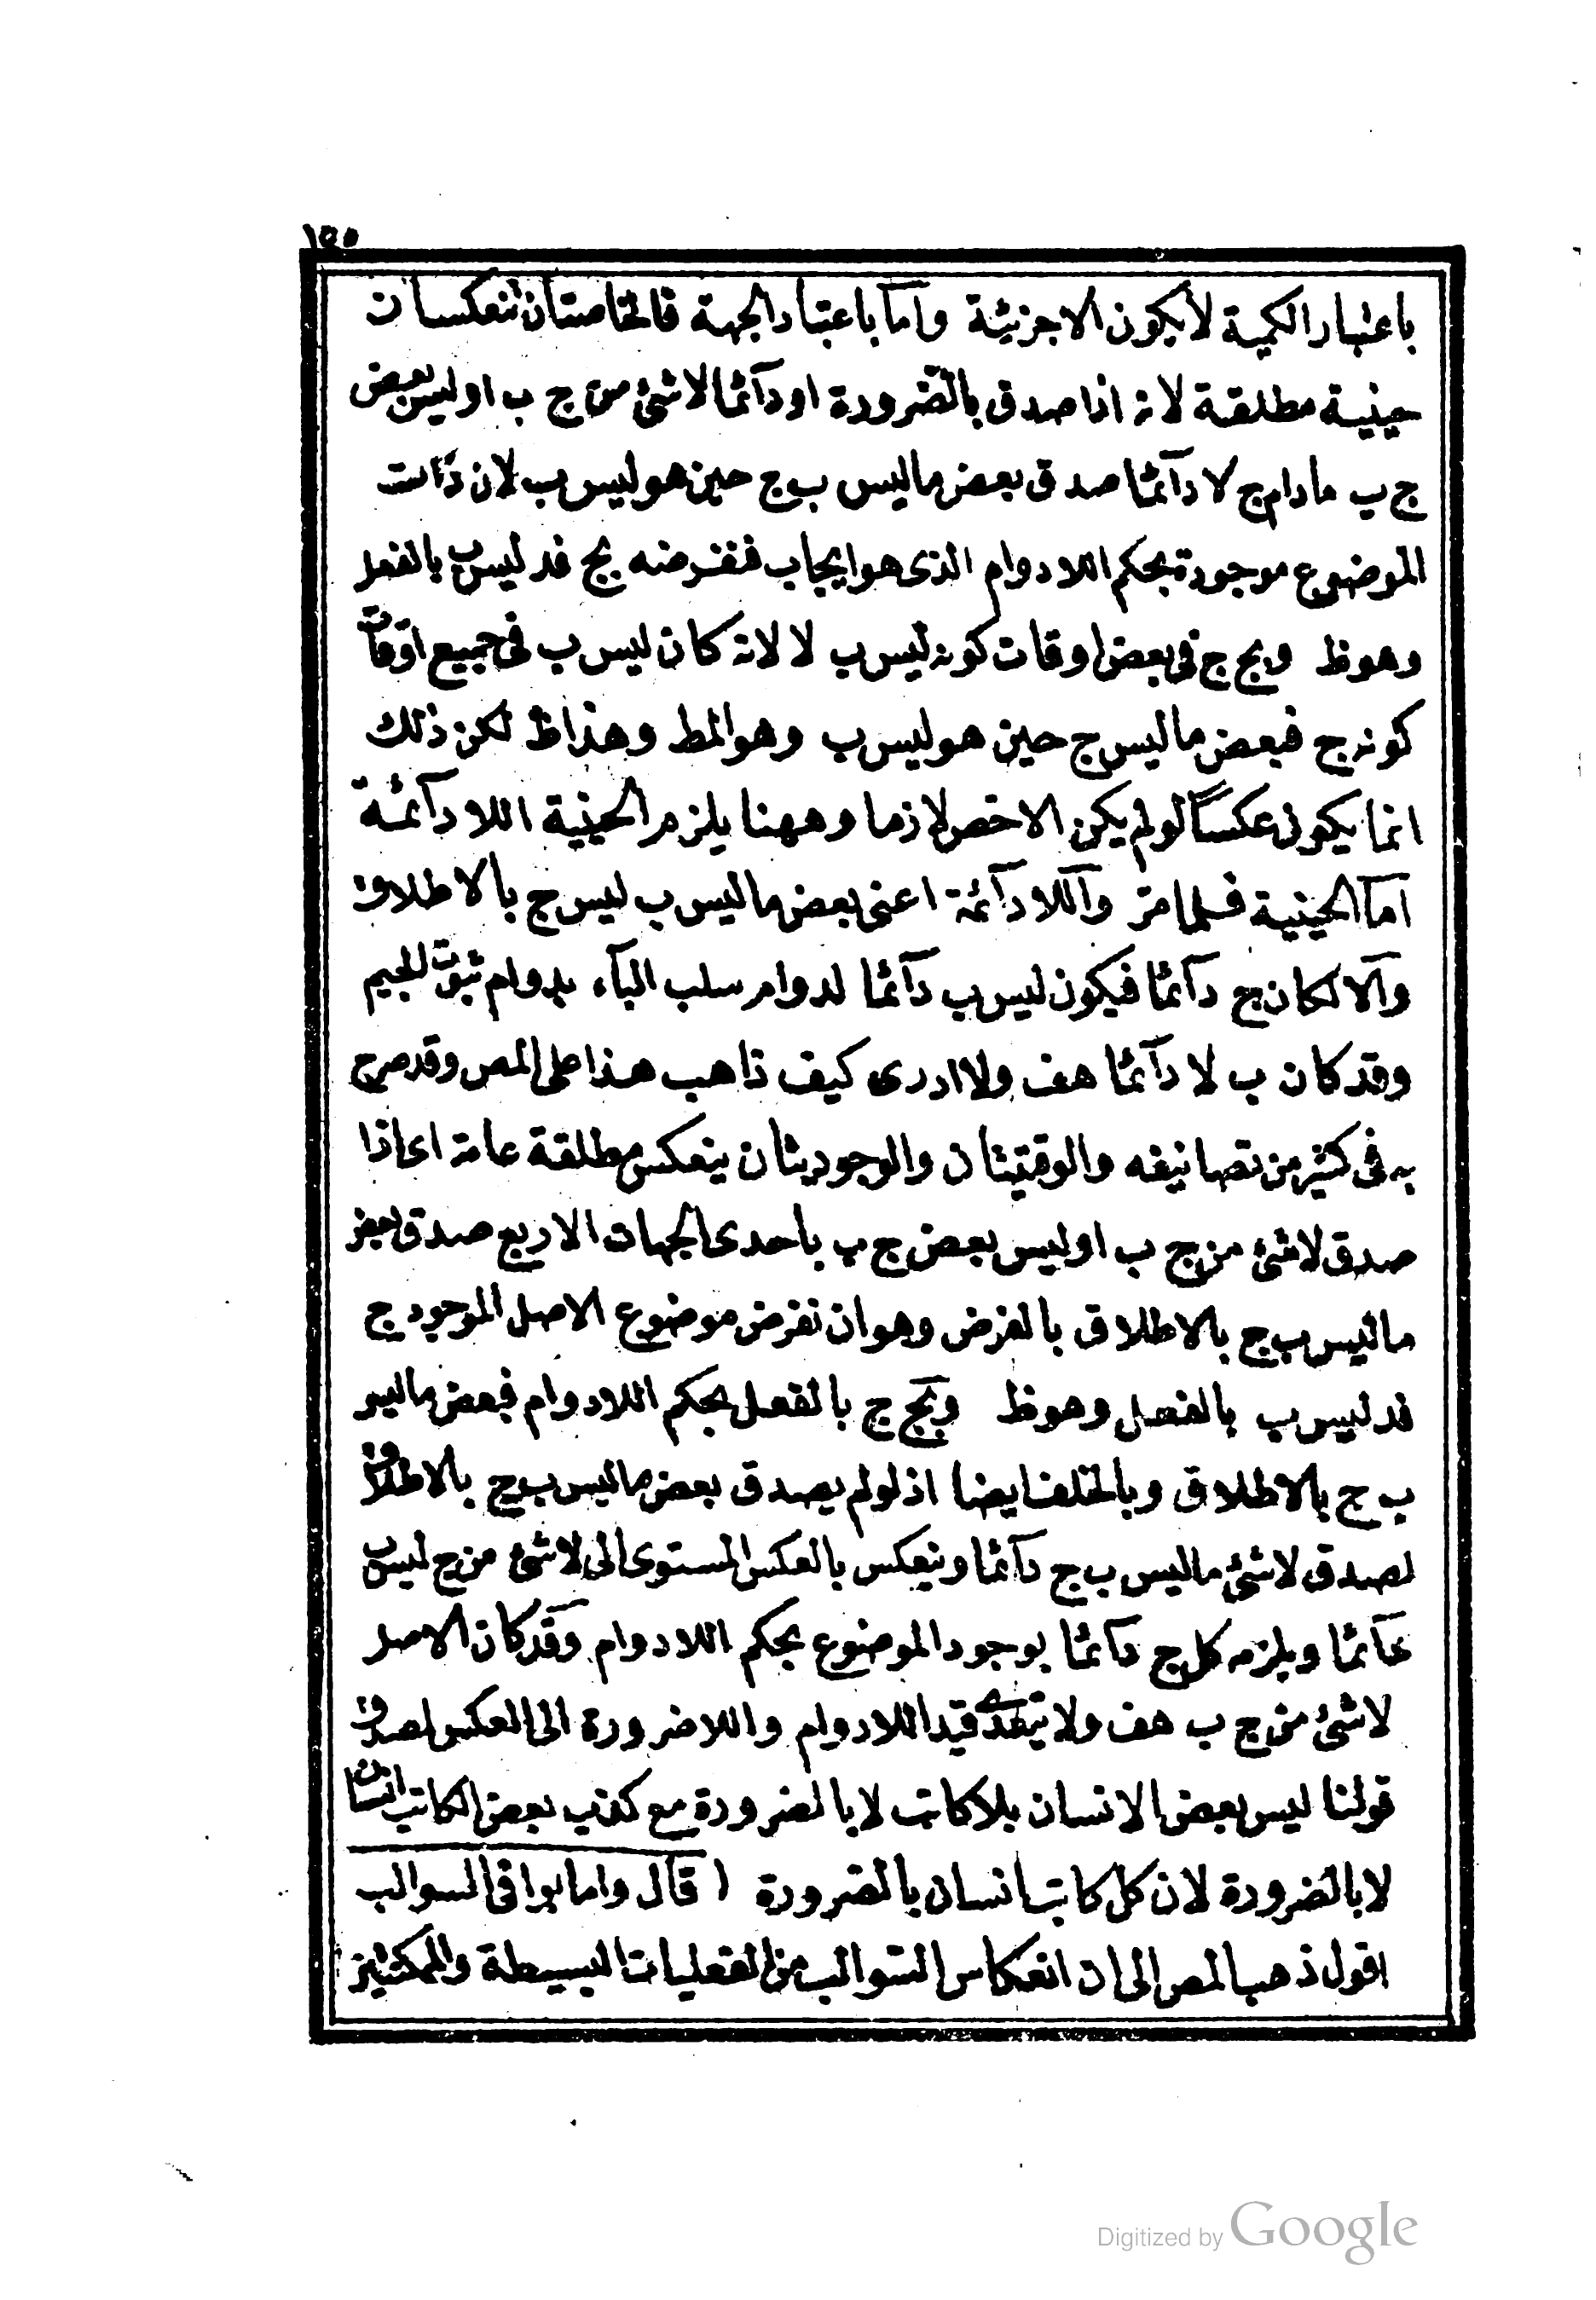 ١٥٥
باعتبار الكمية لا يكون الا جزئية واما باعتبار الجهة فالخاصتان تنعكسان
حينية مطلقة لانه اذا صدق بالضرورة او دآئما لا شئ من ج ب او ليس بعض
ج ب مادام ج لا دآئما صدق بعض ما ليس ب ج حين هو ليس ب لان ذات
الموضوع موجودة بحكم اللادوام الذى هو ايجاب فنفرضه بج فد ليس ب بالفعل
وهوظ وبج ج فى بعض اوقات كونه ليس ب لا لانه كان ليس ب فى جميع اوقات
كونه ج فبعض ما ليس ج حين هو ليس ب وهو المط وهذاظ لكن ذلك
انما يكون عكسًا لو لم يكن الاخص لازما وههنا يلزم الحينية اللا دآئمة
امآ الحينية فلما مرّ وآللا دآئمة اعنى بعض ما ليس ب ليس ج بالاطلاق
وآلا لكان ج دآئما فيكون ليس ب دآئما لدوام سلب البآء بدوام ثبوت الجيم
وقد كان ب لا دآئما هف ولا ادرى كيف ذاهب هذا على المص وقد صرح
به فى كثير من تصانيفه والوقتيتان والوجوديتان ينعكس مطلقة عامة اى اذا
صدق لا شئ من ج ب او ليس بعض ج ب باحدى الجهات الاربع صدق بعض
ما ليس ب ج بالاطلاق بالفرض وهو ان نفرض موضوع الاصل الموجود ج
فد ليس ب بالفعل وهوظ وبج ج بالفعل بحكم اللادوام فبعض ما ليس
ب ج بالاطلاق وبالخلف ايضا اذ لو لم يصدق بعض ما ليس ب ج بالاطلاق
لصدق لا شئ ما ليس ب ج دآئما وينعكس بالعكس المستوى الى لا شئ من ج ليس ب
دآئما ويلزمه كل ج دآئما بوجود الموضوع بحكم اللادوام وقد كان الاصل
لا شئ من ج ب هف ولا يتعدى قيد اللادوام واللاضرورة الى العكس لصدق
قولنا ليس بعض الانسان بلا كاتب لا بالضرورة مع كذب بعض الكاتب انسان
لا بالضرورة لان كل كاتب انسان بالضرورة ( قال واما بوا فى السوالب
اقول ذهب المص الى ان انعكاس السوالب من الفعليات البسيطة والممكنتين
Digitized by Google